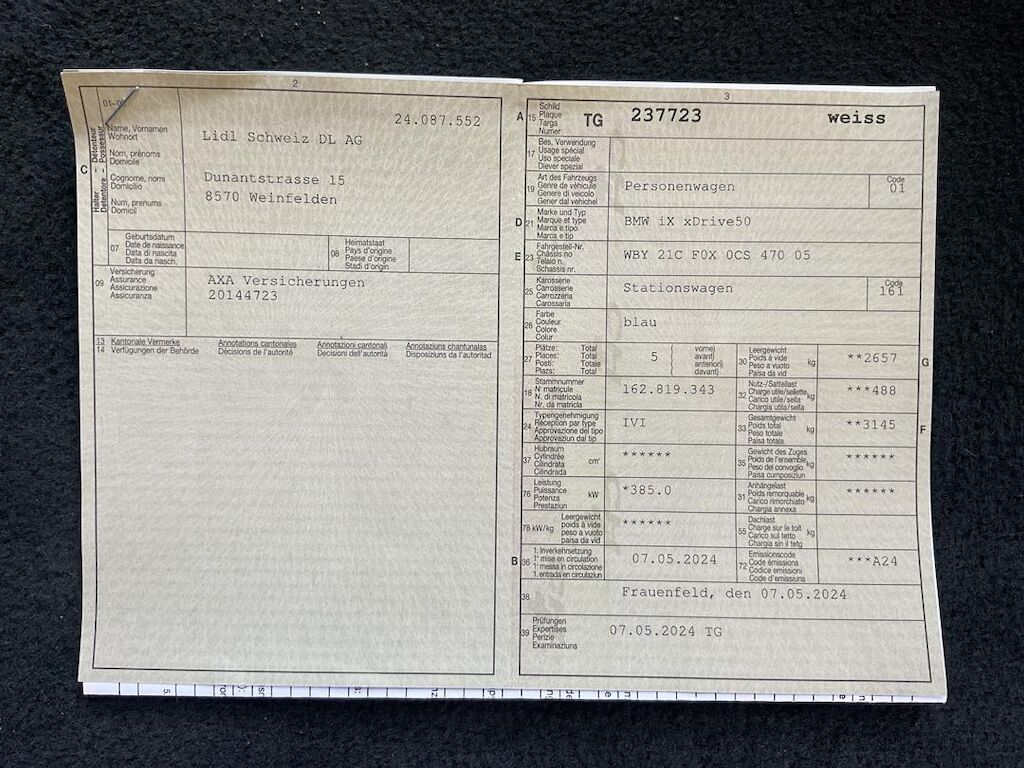 2
01-0
Halter - Détenteur
Detentore - Possessur
C
Name, Vornamen
Wohnort
Nom, prénoms
Domicile
Cognome, nomi
Domicilio
Num, prenums
Domicil
24.087.552
Lidl Schweiz DL AG
Dunantstrasse 15
8570 Weinfelden
07
Geburtsdatum
Date de naissance
Data di nascita
Data da nasch.
08
Heimatstaat
Pays d'origine
Paese d'origine
Stadi d'origin
09
Versicherung
Assurance
Assicurazione
Assicuranza
AXA Versicherungen
20144723
13 Kantonale Vermerke Annotations cantonales Annotazioni cantonali Annotaziuns chantunalas
14 Verfügungen der Behörde Décisions de l'autorité Decisioni dell'autorità Disposiziuns da l'autoritad
3
A 15
Schild
Plaque
Targa
Numer
TG 237723 weiss
17
Bes. Verwendung
Usage spécial
Uso speciale
Diever spezial
19
Art des Fahrzeugs
Genre de véhicule
Genere di veicolo
Gener dal vehichel
Personenwagen
Code
01
D 21
Marke und Typ
Marque et type
Marca e tipo
Marca e tip
BMW iX xDrive50
E 23
Fahrgestell-Nr.
Châssis no
Telaio n.
Schassis nr.
WBY 21C F0X 0CS 470 05
25
Karosserie
Carrosserie
Carrozzeria
Carossaria
Stationswagen
Code
161
26
Farbe
Couleur
Colore
Colur
blau
27
Plätze: Total
Places: Total
Posti: Totale
Plazs: Total
5
( vorne)
( avant)
( anteriori)
( davant)
30
Leergewicht
Poids à vide
Peso a vuoto
Paisa da vid
kg
**2657
G
18
Stammnummer
N° matricule
N. di matricola
Nr. da matricla
162.819.343
32
Nutz-/Sattellast
Charge utile/sellette
Carico utile/sella
Chargia utila/sella
kg
***488
24
Typengenehmigung
Réception par type
Approvazione del tipo
Approvaziun dal tip
IVI
33
Gesamtgewicht
Poids total
Peso totale
Paisa totala
kg
**3145
F
37
Hubraum
Cylindrée
Cilindrata
Cilindrada
cm³
******
35
Gewicht des Zuges
Poids de l'ensemble
Peso del convoglio
Paisa cumposiziun
kg
******
76
Leistung
Puissance
Potenza
Prestaziun
kW
*385.0
31
Anhängelast
Poids remorquable
Carico rimorchiato
Chargia annexa
kg
******
78 kW/kg
Leergewicht
poids à vide
peso a vuoto
paisa da vid
******
55
Dachlast
Charge sur le toit
Carico sul tetto
Chargia sin il tetg
kg
B 36
1. Inverkehrsetzung
1re mise en circulation
1a messa in circolazione
1. entrada en circulaziun
07.05.2024
72
Emissionscode
Code émissions
Codice emissioni
Code d'emissiuns
***A24
38
Frauenfeld, den 07.05.2024
39
Prüfungen
Expertises
Perizie
Examinaziuns
07.05.2024 TG